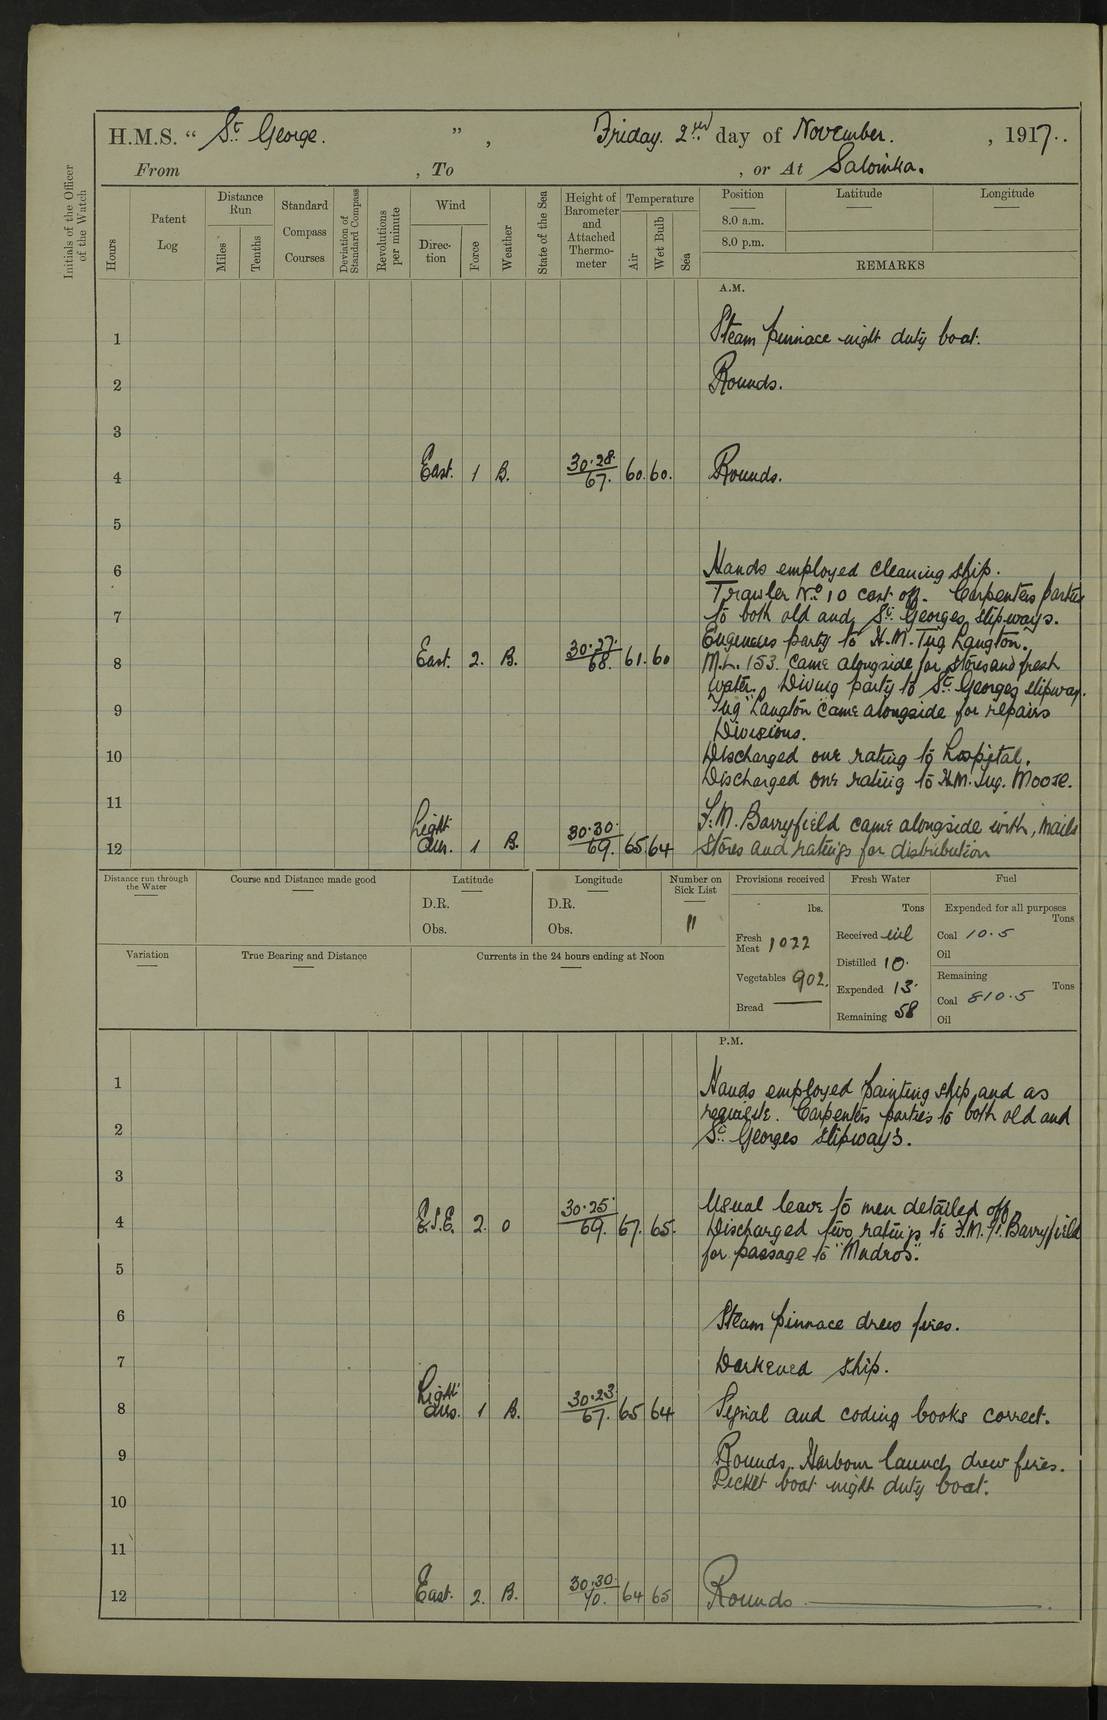 H.M.S. “ St George. ” , Friday. 2nd day of November. , 1917..
From , To , or At Salonika.
Initials of the Officer of the Watch
Hours
Patent Log
Distance Run
Miles
Tenths
Standard Compass Courses
Deviation of Standard Compass
Revolutions per minute
Wind
Direc-tion
Force
Weather
State of the Sea
Height of Barometer and Attached Thermo-meter
Temperature
Air
Wet Bulb
Sea
Position
Latitude
Longitude
8.0 a.m.
8.0 p.m.
REMARKS
A.M.
1 Steam pinnace night duty boat.
2 Rounds.
3
4 East. 1 B. 30·28. 67. 60. 60. Rounds.
5
6 Hands employed cleaning ship.
Trawler No 10 cast off. Carpenters parties
7 to both old and St Georges slipways.
Engineers party to H.M. Tug Langton.
8 East. 2. B. 30·27. 68. 61. 60 M.L. 153. came alongside for stores and fresh
water. Diving party to St Georges slipway.
9 Tug "Langton came alongside for repairs
Divisions.
10 Discharged one rating to hospital.
Discharged one rating to H.M. Tug. Moose.
11
Light F.M. Barryfield came alongside with, mails
12 airs. 1 B. 30·30. 69. 65 64 Stores and ratings for distribution
Distance run through the Water
Course and Distance made good
Latitude
D.R.
Obs.
Longitude
D.R.
Obs.
Number on Sick List
11
Provisions received
lbs.
Fresh Meat 1022
Vegetables 902.
Bread ——
Fresh Water
Tons
Received nil
Distilled 10.
Expended 13.
Remaining 58
Fuel
Expended for all purposes
Tons
Coal 10.5
Oil
Remaining
Tons
Coal 810.5
Oil
Variation
True Bearing and Distance
Currents in the 24 hours ending at Noon
P.M.
1 Hands employed painting ship and as
requisite. Carpenters parties to both old and
2 St Georges slipways.
3
Usual leave to men detailed off
4 E.S.E. 2. o 30·25. 69. 67. 65. Discharged two ratings to F.M. Barryfield
for passage to "Mudros".
5
6 Steam pinnace drew fires.
7 Darkened ship.
8 Light airs. 1 B. 30·23. 67. 65 64 Signal and coding books correct.
9 Rounds. Harbour launch drew fires.
Picket boat night duty boat.
10
11
12 East. 2. B. 30·30. 70. 64 65 Rounds